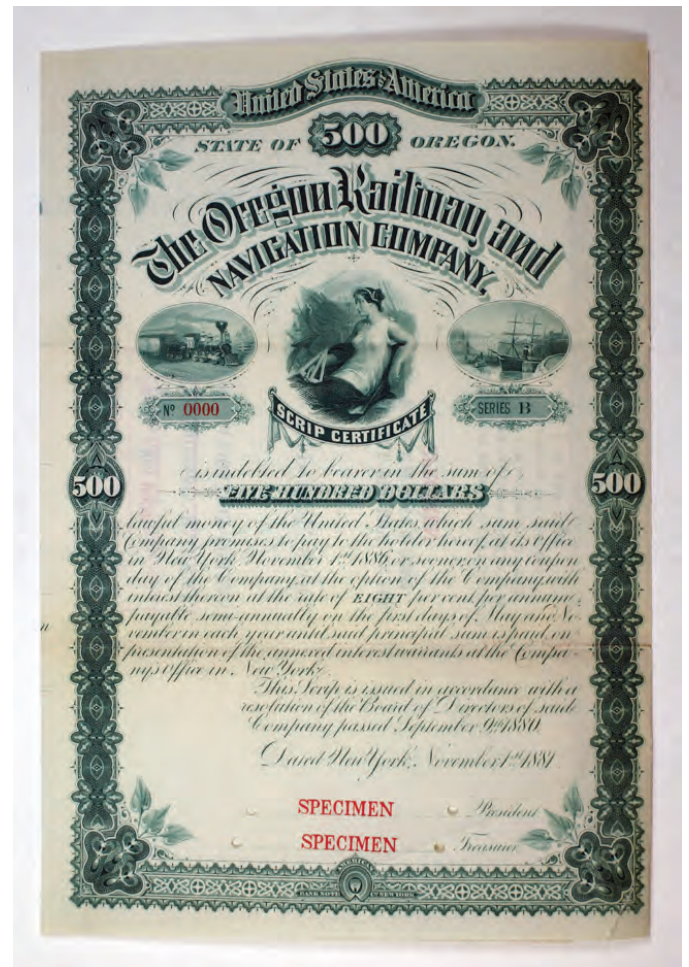 United States of America
STATE OF 500 OREGON.
The Oregon Railway and
NAVIGATION COMPANY.
Nº 0000
SCRIP CERTIFICATE
SERIES B
is indebted to bearer in the sum of
500 FIVE HUNDRED DOLLARS 500
lawful money of the United States which sum said
Company promises to pay to the holder hereof, at its office
in New York, November 1st 1886, or sooner, on any coupon
day of the Company, at the option of the Company, with
interest thereon at the rate of EIGHT per cent, per annum,
payable semi-annually on the first days of May and No-
vember in each year until said principal sum is paid, on
presentation of the annexed interest warrants at the Compa-
ny's Office in New York.
This Scrip is issued in accordance with a
resolution of the Board of Directors of said
Company passed September 9th 1880.
Dated New York, November 1st 1881
SPECIMEN President
SPECIMEN Treasurer
AMERICAN
BANK NOTE NEW YORK